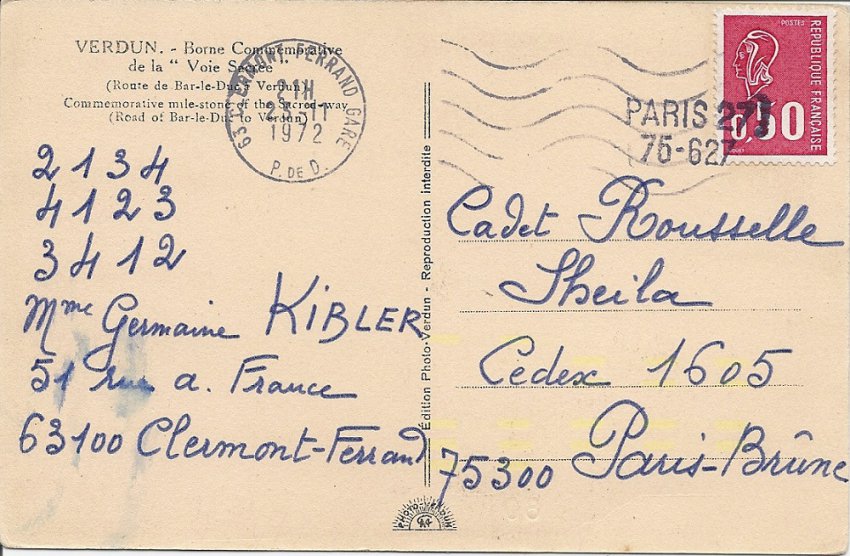 VERDUN. - Borne Commémorative
de la " Voie Sacrée "
(Route de Bar-le-Duc à Verdun)
Commemorative mile-stone of the Sacred-way
(Road of Bar-le-Duc to Verdun)
63 CLERMONT-FERRAND GARE
21H
1972
P. DE D.
PARIS 27
75-627
POSTES
REPUBLIQUE FRANÇAISE
0,50
2134
4123
3412
Mme Germaine KIBLER
51 rue a. France
63100 Clermont-Ferrand
Édition Photo-Verdun - Reproduction interdite
PHOTO-VERDUN
Cadet Rousselle
Sheila
Cedex 1605
75300 Paris-Brûne